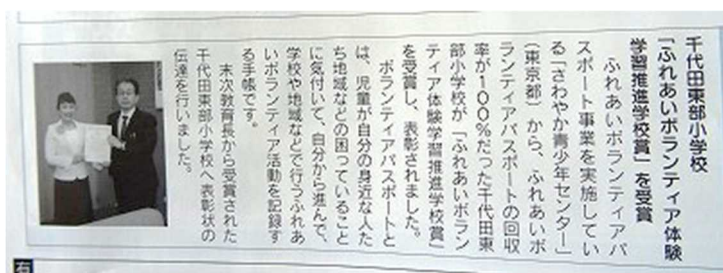 千代田東部小学校
「ふれあいボランティア体験
学習推進学校賞」を受賞
ふれあいボランティアパ
スポート事業を実施してい
る「さわやか青少年センター」
（東京都）から、ふれあいボ
ランティアパスポートの回収
率が１００％だった千代田東
部小学校が「ふれあいボラン
ティア体験学習推進学校賞」
を受賞し、表彰されました。
ボランティアパスポートと
は、児童が自分の身近な人た
ち地域などの困っていること
に気付いて、自分から進んで、
学校や地域などで行うふれあ
いボランティア活動を記録す
る手帳です。
末次教育長から受賞された
千代田東部小学校へ表彰状の
伝達を行いました。
有